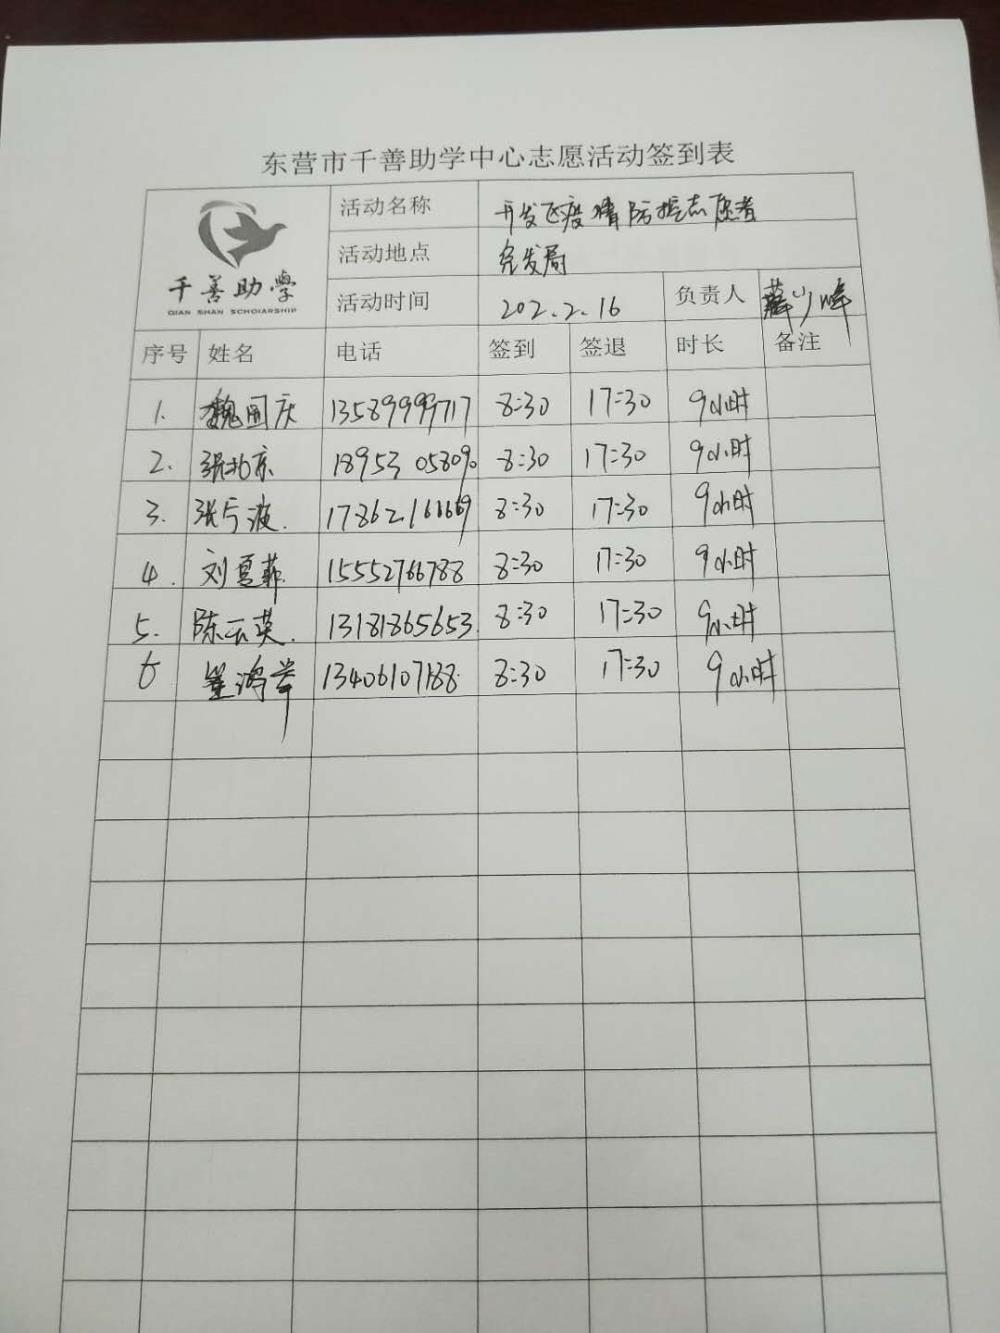 东营市千善助学中心志愿活动签到表
千善助學
QIAN SHAN SCHOIARSHIP
活动名称 开发区疫情防控志愿者
活动地点 发局
活动时间 202.2.16 负责人
序号 姓名 电话 签到 签退 时长 备注
1. 魏国庆 13589999717 8:30 17:30 9小时
2. 张北京 18953 05809 8:30 17:30 9小时
3. 张波. 17862.166669 8:30 17:30 9小时
4. 刘夏菲 15552766788 8:30 17:30 9小时
5. 陈云英. 13181865653. 8:30 17:30 9小时
6 鸿 13406107188 8:30 17:30 9小时